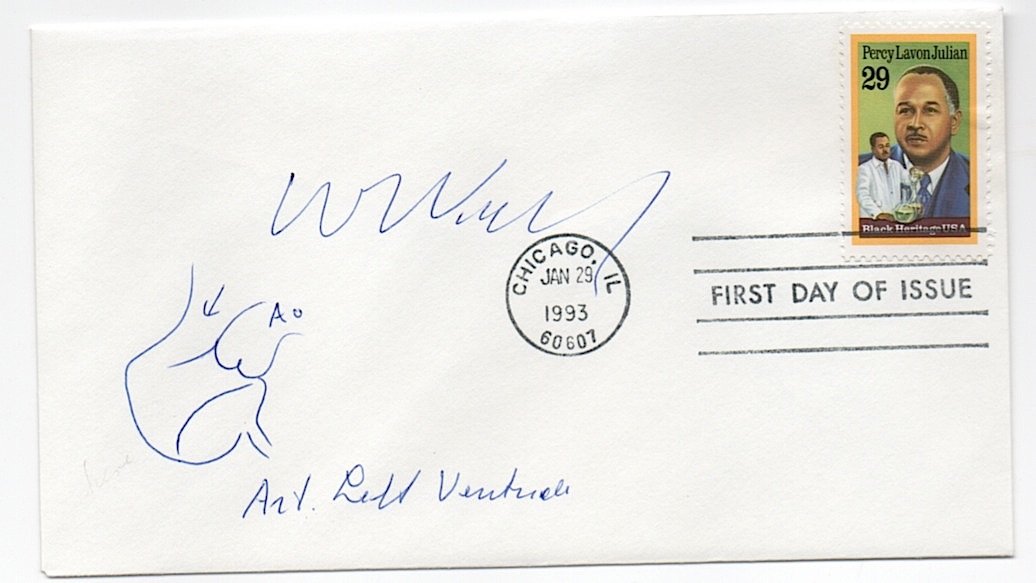 Percy Lavon Julian
29
Black Heritage USA
CHICAGO, IL
JAN 29
1993
60607
FIRST DAY OF ISSUE
Ao
Art. Left Ventricle